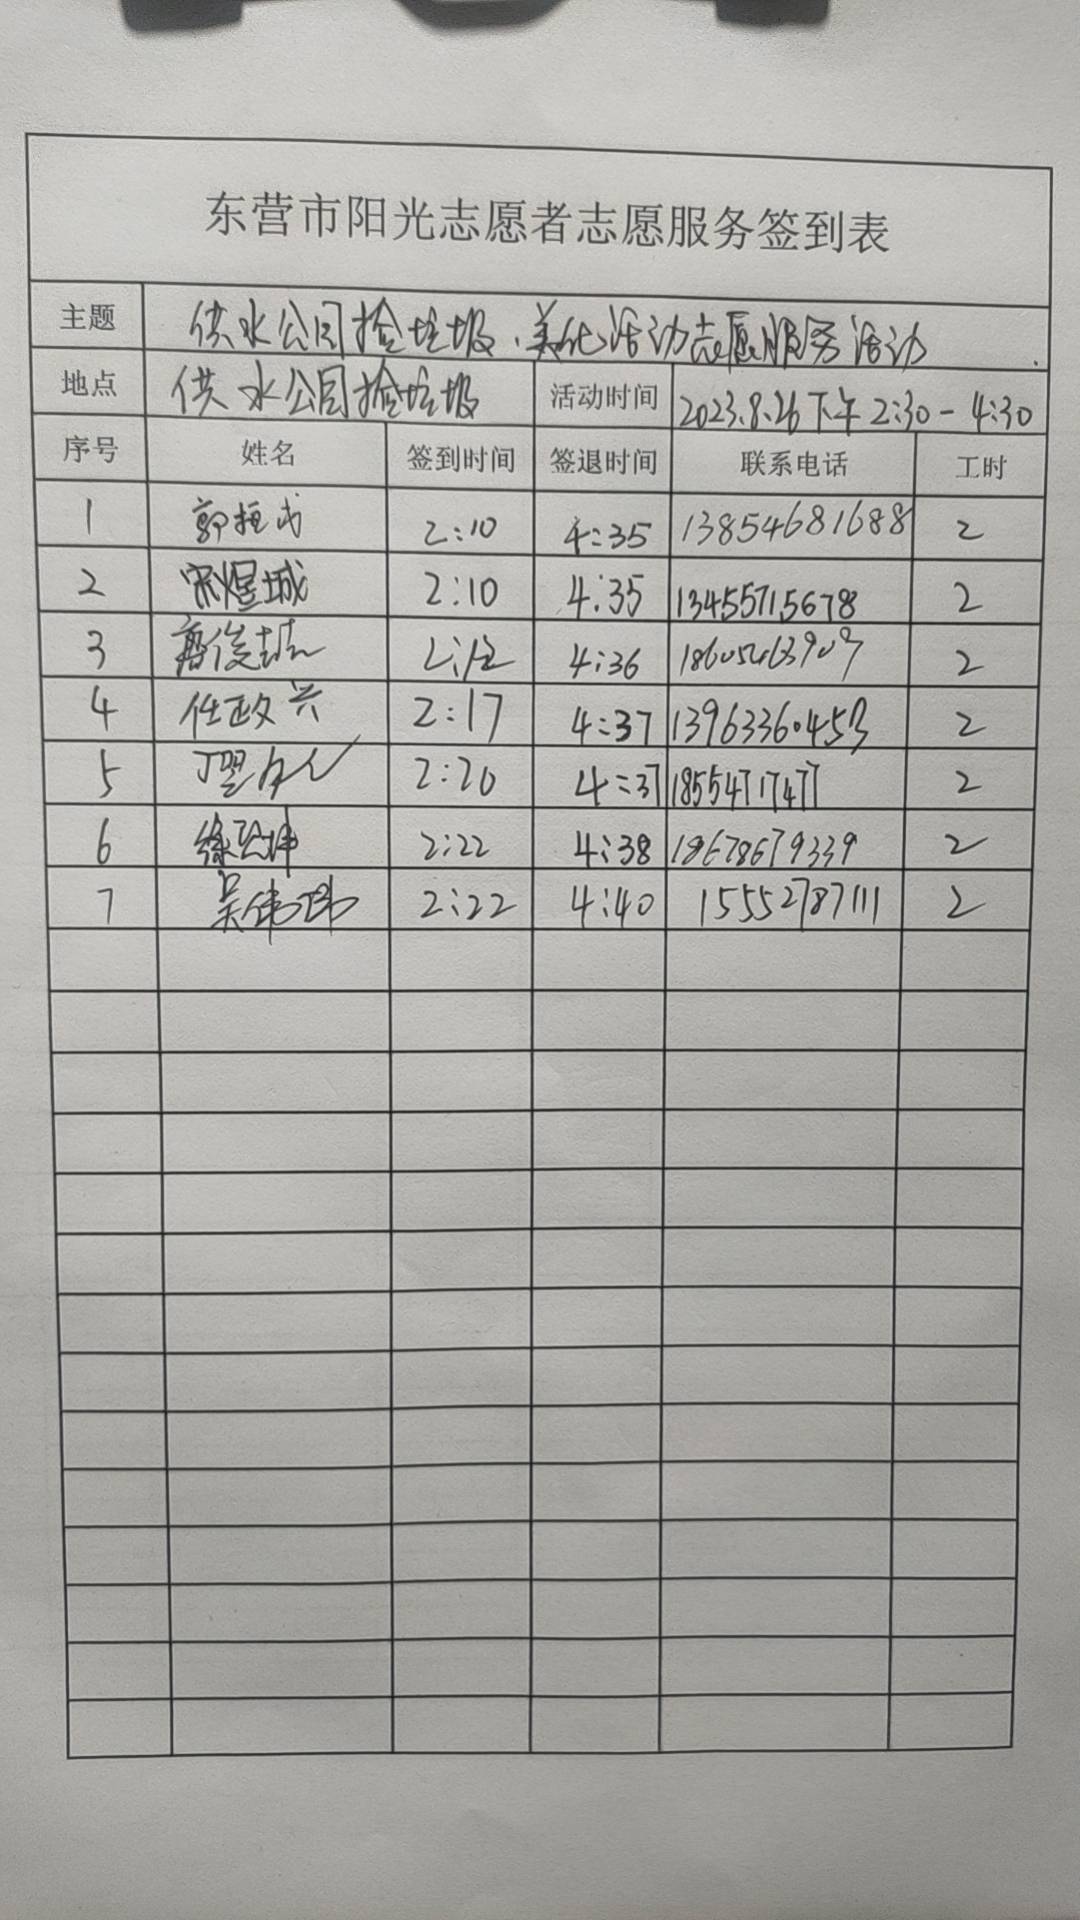 东营市阳光志愿者志愿服务签到表
主题 供水公园捡垃圾、美化活动志愿服务活动
地点 供水公园捡垃圾 活动时间 2023.8.26下午2:30-4:30
序号 姓名 签到时间 签退时间 联系电话 工时
1 2:10 4:35 13854681688 2
2 宋煜城 2:10 4:35 13455715678 2
3 2:12 4:36 18605463909 2
4 任政兴 2:17 4:37 13963360453 2
5 2:20 4:37 18554717477 2
6 2:22 4:38 18678679339 2
7 吴伟玮 2:22 4:40 15552787111 2